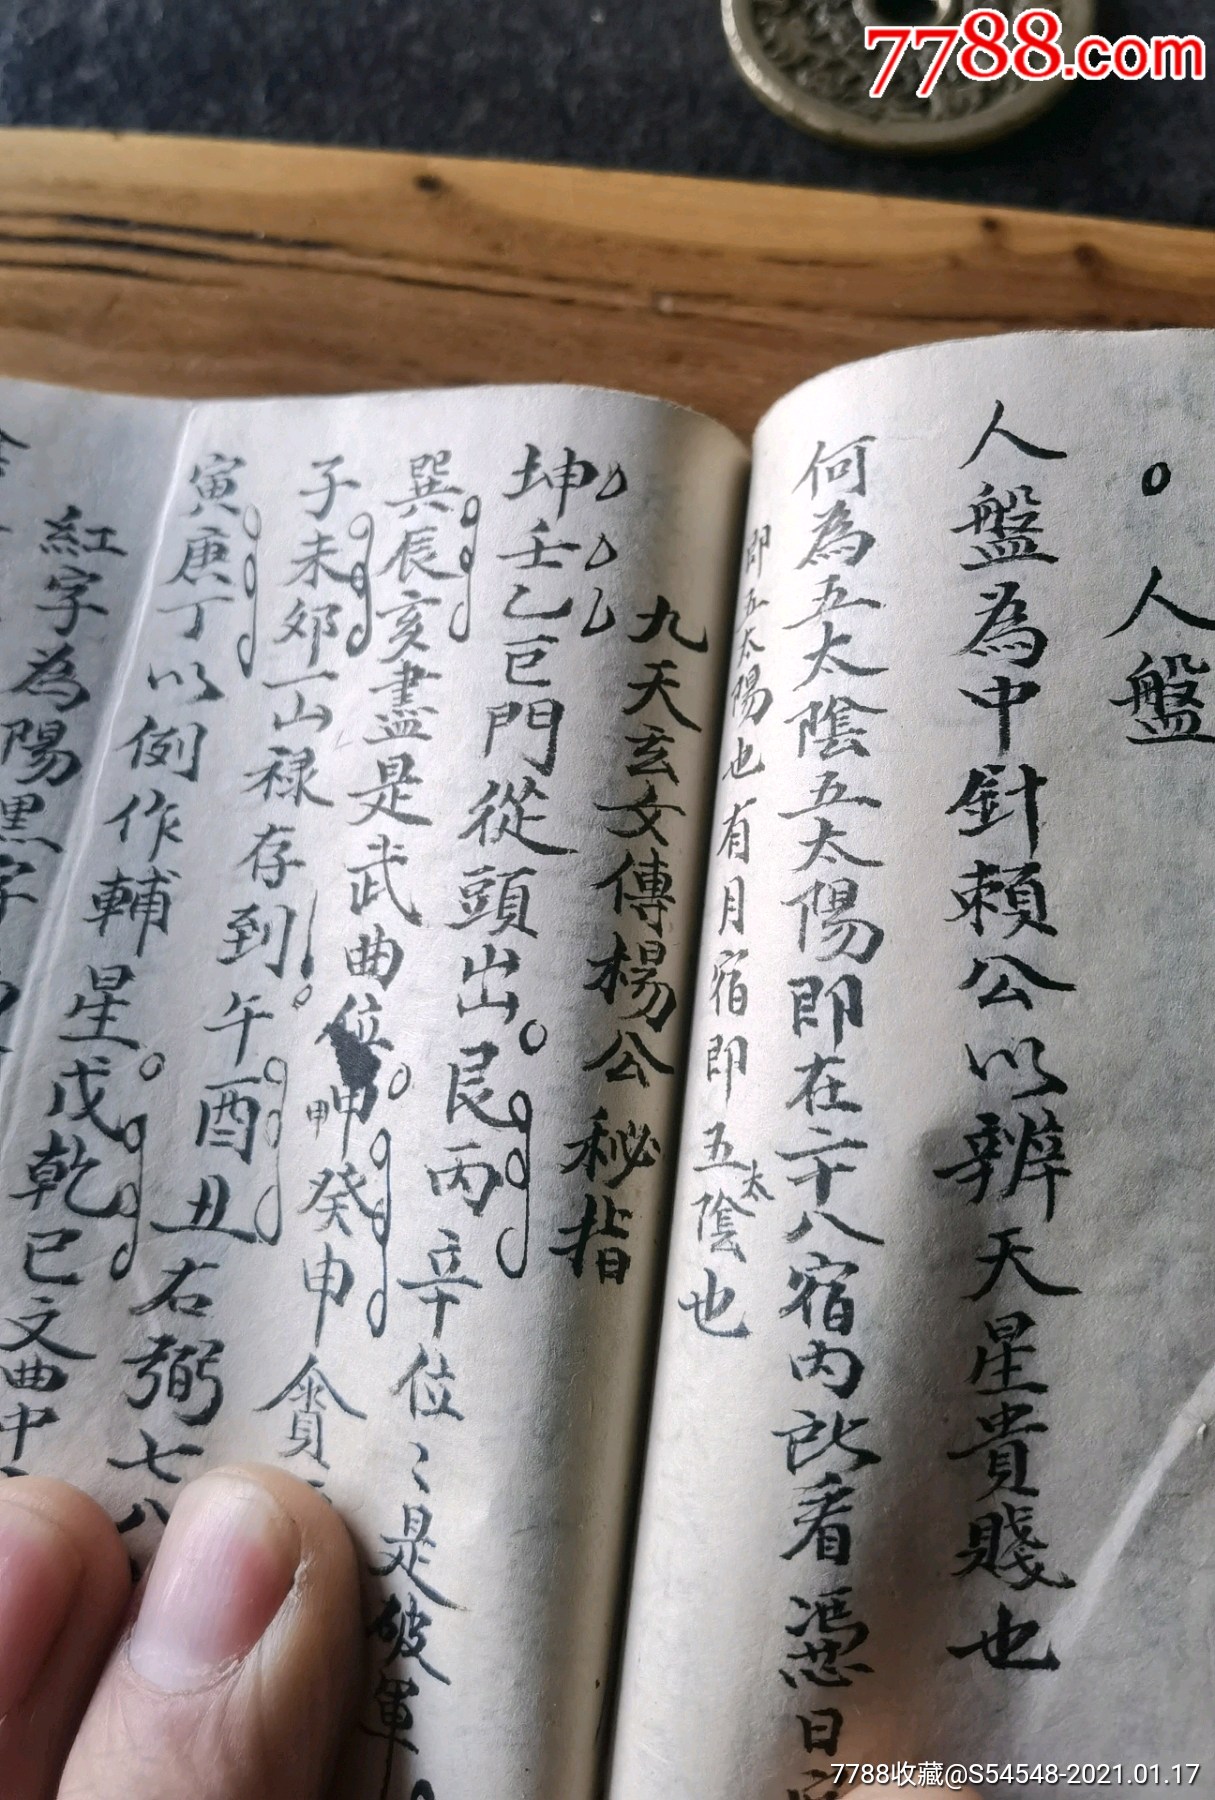 7788.com
人盤
人盤為中針賴公以辨天星貴賤也
何為五太陰五太陽即在二十八宿內所看憑日
即五太陽也有月宿即五太陰也
九天玄女傳楊公秘指
坤壬乙巨門從頭出艮丙辛位〻是破軍
巽辰亥盡是武曲位甲甲癸申貪
子未卯一山祿存到午酉丑右弼七八
寅庚丁以例作輔星戌乾巳文曲中
紅字為陽黑字
7788收藏@S54548-2021.01.17